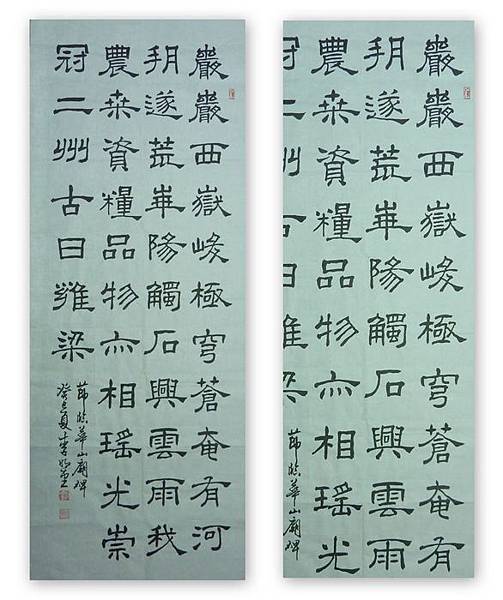 巖巖西嶽峻極穹蒼奄有河
朔遂荒華陽觸石興雲雨我
農桒資糧品物亦相瑤光崇
冠二州古曰雍梁
節臨華山廟碑
癸巳夏
巖巖西嶽峻極穹蒼奄有
朔遂荒華陽觸石興雲雨
農桒資糧品物亦相瑤光
冠二州古曰雍梁
節臨華山廟碑